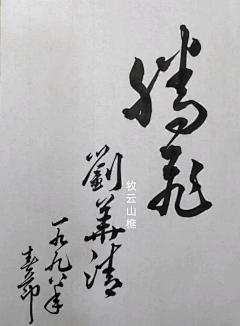 腾飞
劉華清
一九九八年
春节
牧云山樵